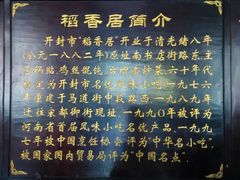 稻香居简介
开封市"稻香居"开业于清光绪八年
(公元一八八二年)原址南书店街路东,主
锅贴,鸡丝馄饨,
炒菜,六十年代
定为开封市名优风味小吃,一九七六
年重建于马道街中段路西,一九八九年
迁往宋都御街现址,一九九0年被评为
河南省首届风味小吃名优产品,一九九
七年被中国烹饪协会评为"中华名小吃",
被国家国内贸易局评为"中国名点"。